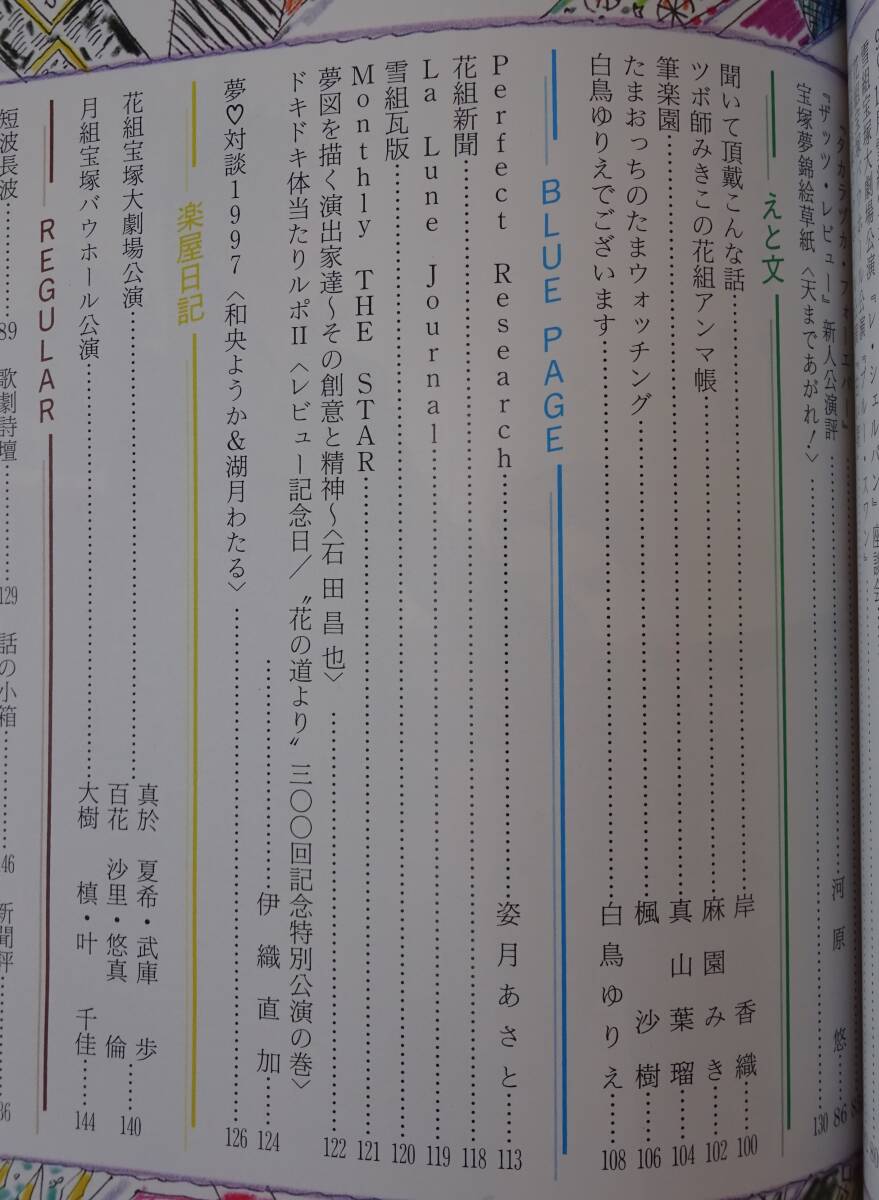 『ザッツ・レビュー』新人公演評……河原 悠……86
宝塚夢錦絵草紙〈天まであがれ！〉……130
えと文
聞いて頂戴こんな話……岸 香織……100
ツボ師みきこの花組アンマ帳……麻園みき……102
筆楽園……真山葉瑠……104
たまおっちのたまウォッチング……楓 沙樹……106
白鳥ゆりえでございます……白鳥ゆりえ……108
BLUE PAGE
Perfect Research……姿月あさと……113
花組新聞……118
La Lune Journal……119
雪組瓦版……120
Monthly THE STAR……121
夢図を描く演出家達〜その創意と精神〜〈石田昌也〉……122
ドキドキ体当たりルポII〈レビュー記念日／〝花の道より〟三〇〇回記念特別公演の巻〉
……伊織直加……124
夢♡対談1997〈和央ようか＆湖月わたる〉……126
楽屋日記
花組宝塚大劇場公演……真於 夏希・武庫 歩
百花 沙里・悠真 倫……140
月組宝塚バウホール公演……大樹 槙・叶 千佳……144
REGULAR
短波長波……89 歌劇詩壇……129 話の小箱……146 新聞評